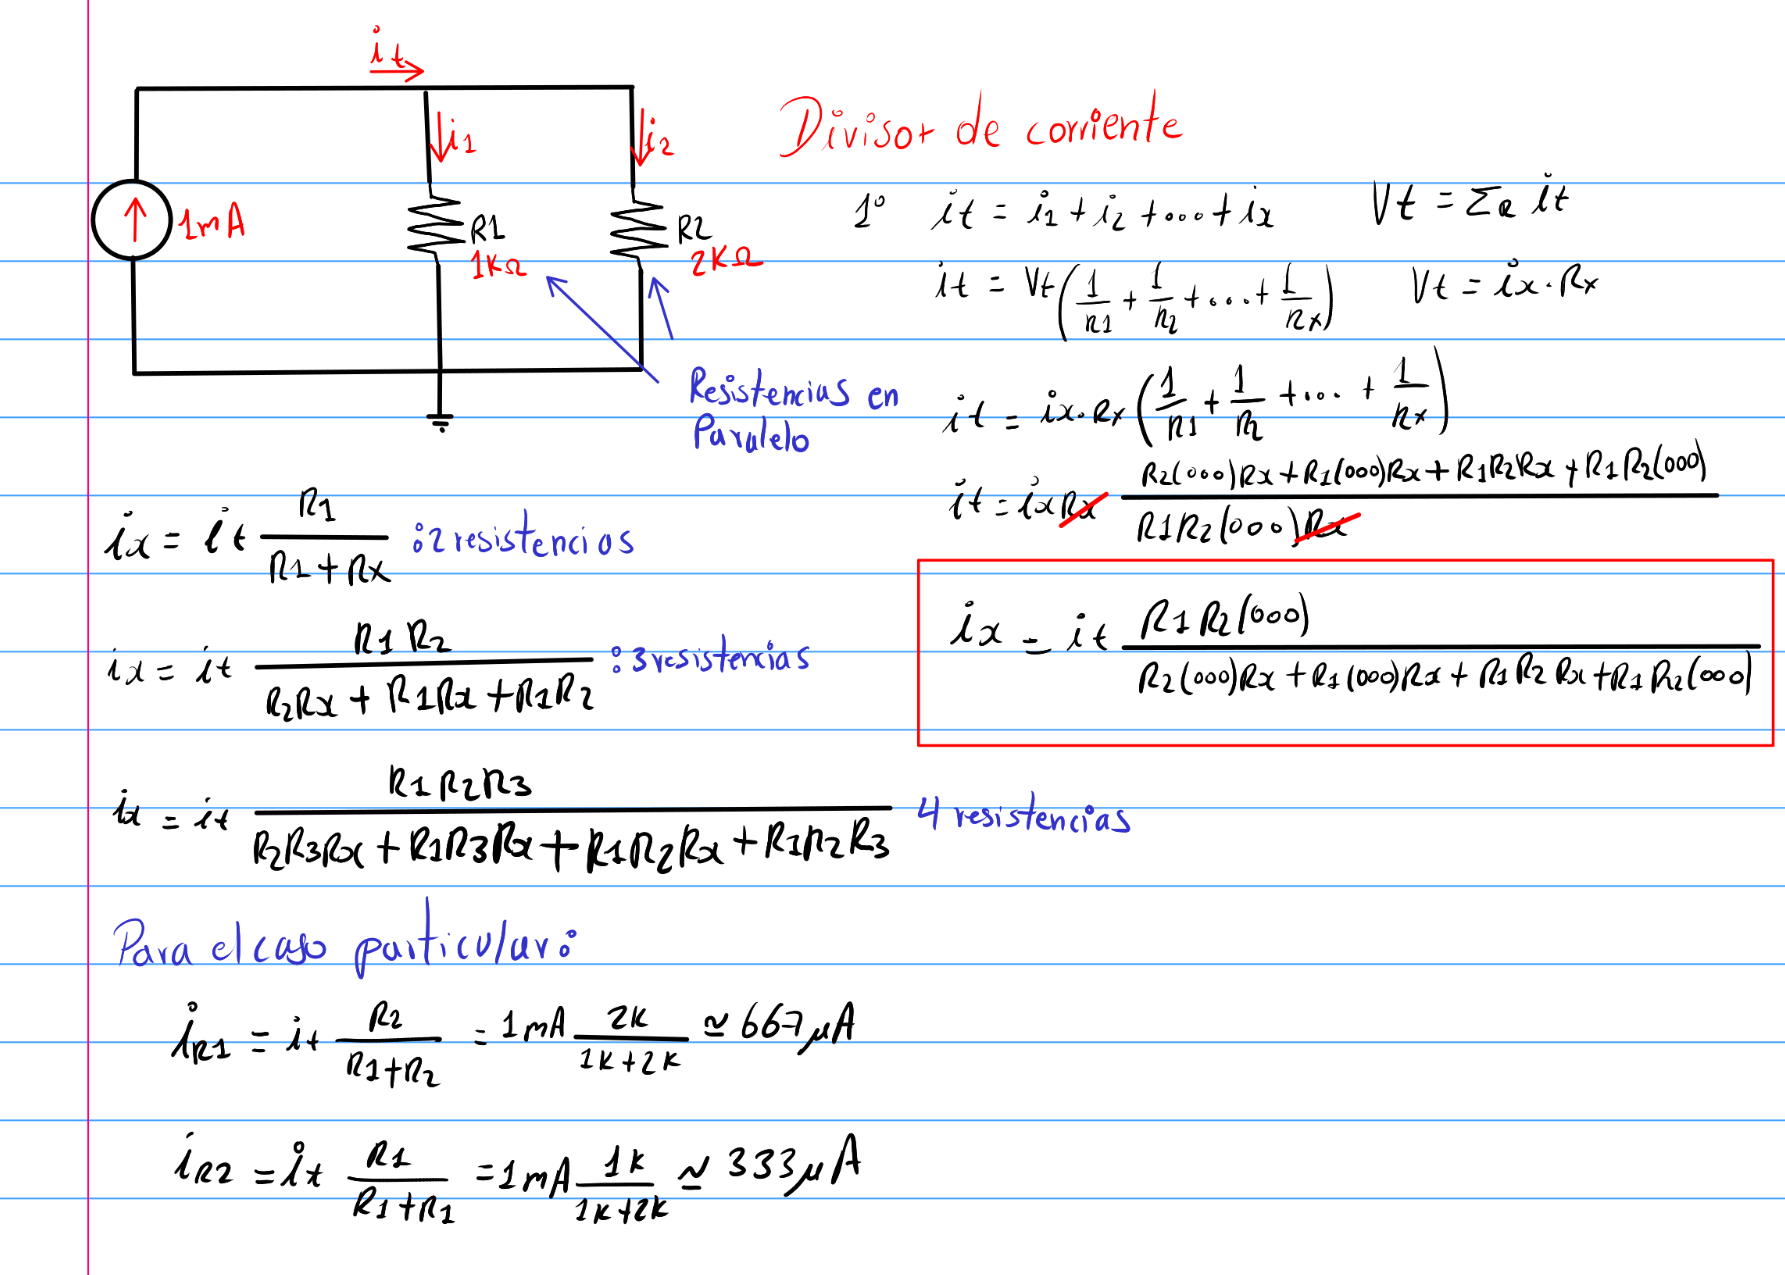 it
i1
i2
1mA
R1
1KΩ
R2
2KΩ
Resistencias en
Paralelo
Divisor de corriente
1° it = i1 + i2 +...+ ix Vt = ΣR it
it = Vt(1/R1 + 1/R2 +...+ 1/Rx) Vt = ix·Rx
it = ix·Rx(1/R1 + 1/R2 +...+ 1/Rx)
it = ixRx (R2(ooo)Rx + R1(ooo)Rx + R1R2Rx + R1R2(ooo))/(R1R2(ooo)Rx)
ix = it R1R2(ooo)/(R2(ooo)Rx + R1(ooo)Rx + R1R2Rx + R1R2(ooo))
ix = it R1/(R1+Rx) :2 resistencias
ix = it R1R2/(R2Rx + R1Rx + R1R2) :3 resistencias
ix = it R1R2R3/(R2R3Rx + R1R3Rx + R1R2Rx + R1R2R3) 4 resistencias
Para el caso particular:
iR1 = it R2/(R1+R2) = 1mA 2K/(1K+2K) ≃ 667μA
iR2 = it R1/(R1+R1) = 1mA 1K/(1K+2K) ≃ 333μA